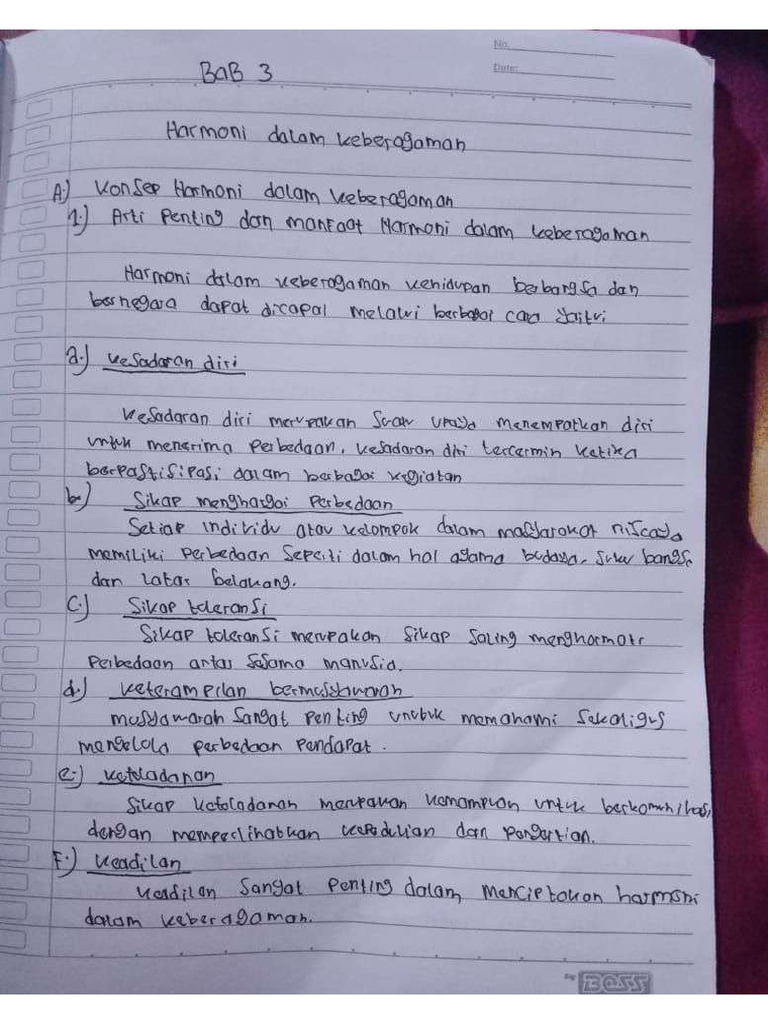 No.
Date:
BAB 3
Harmoni dalam keberagaman
A.) Konsep Harmoni dalam keberagaman
1.) Arti Penting dan manfaat Harmoni dalam keberagaman
Harmoni dalam keberagaman kehidupan berbangsa dan
bernegara dapat dicapai melalui berbagai cara yaitu
a.) kesadaran diri
kesadaran diri merupakan suatu upaya menempatkan diri
untuk menerima perbedaan, kesadaran diri tercermin ketika
berpastisipasi dalam berbagai kegiatan
b.) Sikap menghargai Perbedaan
Setiap individu atau kelompok dalam masyarakat niscaya
memiliki perbedaan seperti dalam hal agama budaya, suku bangsa
dan latar belakang.
C.) Sikap toleransi
Sikap toleransi merupakan sikap saling menghormati
perbedaan antar sesama manusia.
d.) keterampilan bermusyawarah
musyawarah sangat penting untuk memahami sekaligus
mengelola perbedaan pendapat.
e.) keteladanan
Sikap keteladanan merupakan kemampuan untuk berkomunikasi
dengan memperlihatkan kepedulian dan pengertian.
F.) keadilan
keadilan sangat penting dalam menciptakan harmoni
dalam keberagaman.
by BOSS